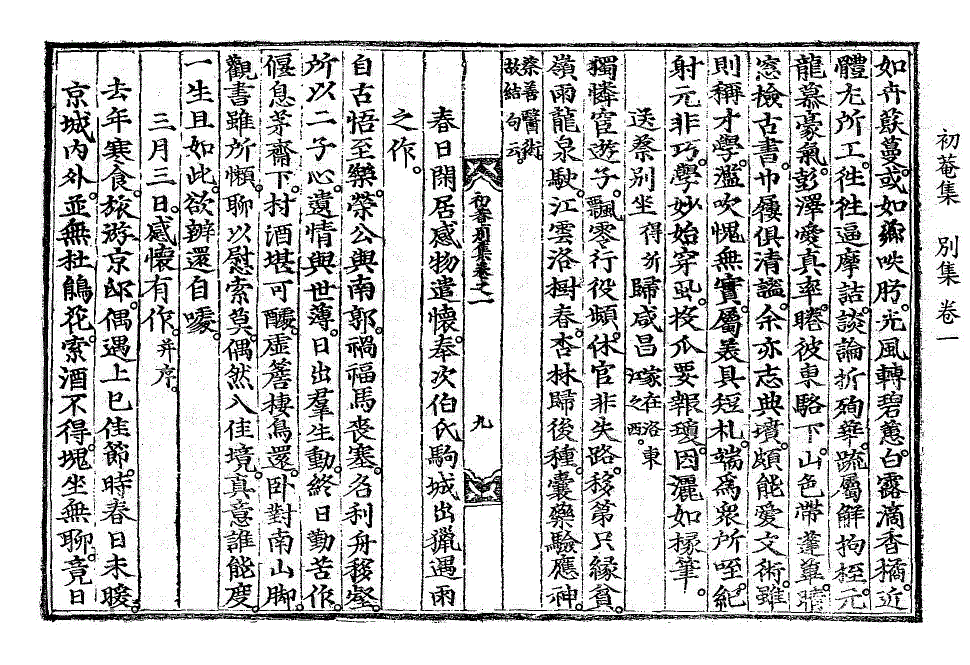 初菴集 別集 卷一
如卉蔌蔓。或如蘂吷肹。光風轉碧蕙。白露滴香橘。近
體尤所工。徃徃逼摩詰。談論折殉華。疏屬解拘桎。元
龍慕豪氣。彭澤愛眞率。睠彼東駱下。山色帶蓬蓽。
窓檢古書。巾屨俱淸謐。余亦志典墳。頗能愛文術。雖
則稱才學。濫吹愧無實。屬美具短札。端爲衆所咥。紀
射元非巧。學妙始穿虱。投瓜要報瓊。因灑如椽筆。
送蔡別坐得沂歸咸昌家在洛東江之西。
獨憐宦遊子。飄零行役頻。休官非失路。移第只緣貧。
嶺雨龍泉駛。江雲洛榭春。杏林歸後種。囊藥驗應神。
蔡善醫術
故結句云
初菴別集卷之一
九
春日閑居感物遣懷奉次伯氏駒城出獵遇雨
之作。
自古悟至樂。榮公與南郭。禍福馬喪塞。名利舟移壑。
所以二子心。遺情與世薄。日出羣生動。終日勤苦作。
偃息茅齋下。村酒堪可醵。虛簷棲鳥還。臥對南山脚。
觀書雖所懶。聊以慰索莫。偶然入佳境。眞意誰能度。
一生且如此。欲辨還自噱。
三月三日。感懷有作。并序。
去年寒食。旅游京邸。偶遇上巳佳節。時春日未暖。
京城內外。並無杜鵑花。索酒不得。塊坐無聊。竟日